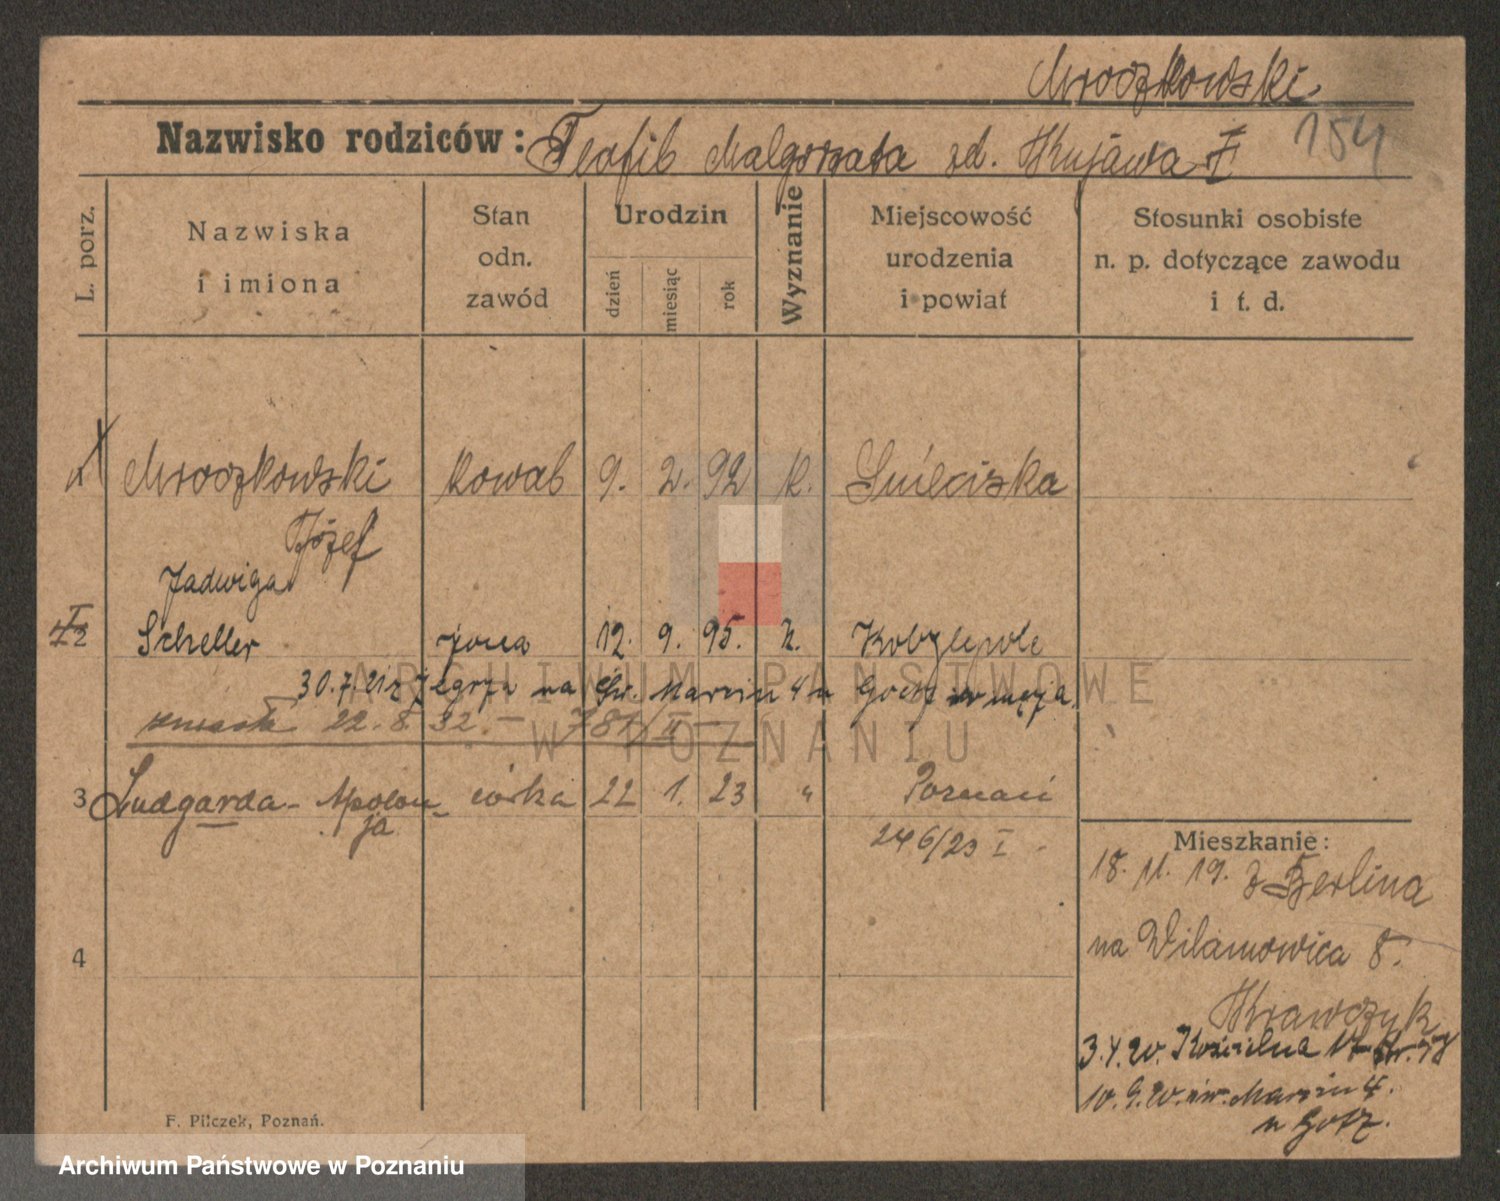 Mroczkowski
Nazwisko rodziców: Teofil Małgorzata zd. Kujawa I
154
L. porz.
Nazwiska
i imiona
Stan
odn.
zawód
Urodzin
dzień
miesiąc
rok
Wyznanie
Miejscowość
urodzenia
i powiat
Stosunki osobiste
n. p. dotyczące zawodu
i t. d.
Mroczkowski kowal 9. 2. 92 k.
Józef
Jadwiga
2 Scheller żona 12. 9. 95. k. Kobylepole
30.7.21 z na Św. Marcin 4 u Gotz męża
22. 8. 32. - 781/II -
3 Ludgarda - Apolon- córka 22 1. 23 " Poznań
ja
246/23 I
4
Mieszkanie:
18. 11. 19. z Berlina
na Wilamowica 8.
Krawczyk
3.4.20. Kościelna 17
10.9.20. św. Marcin 4.
u Gotz.
F. Pilczek, Poznań.
ARCHIWUM PAŃSTWOWE
W POZNANIU
Archiwum Państwowe w Poznaniu